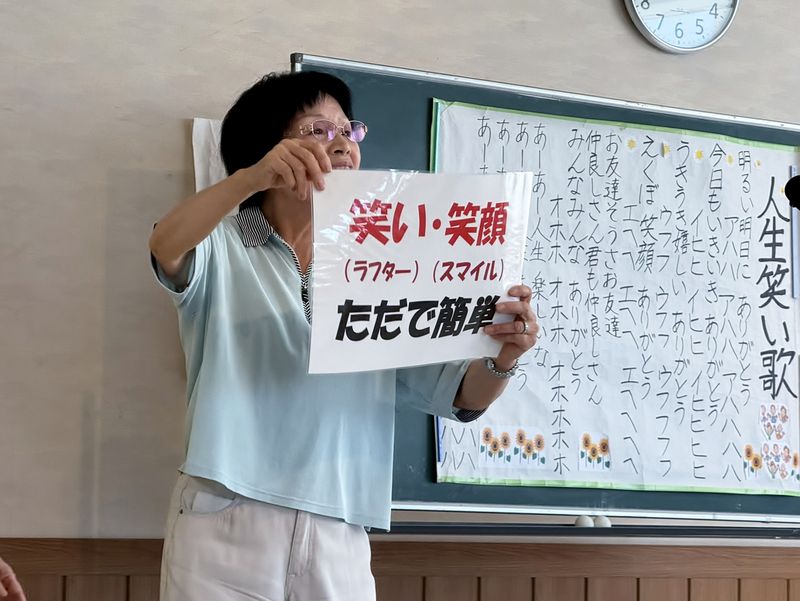 笑い・笑顔
(ラフター)(スマイル)
ただで簡単
人生笑い歌
明るい明日に ありがとう
アハハ アハハ アハハハハ
今日もいきいき ありがとう
イヒヒ イヒヒ イヒヒヒヒ
うきうき嬉しい ありがとう
ウフフ ウフフ ウフフフフ
えくぼ笑顔 ありがとう
エヘヘ エヘヘ エヘヘヘヘ
お友達そうさお友達
仲良しさん君も仲良しさん
みんなみんな ありがとう
オホホ オホホ オホホホホ
あーあー人生
4
5
6
7
8